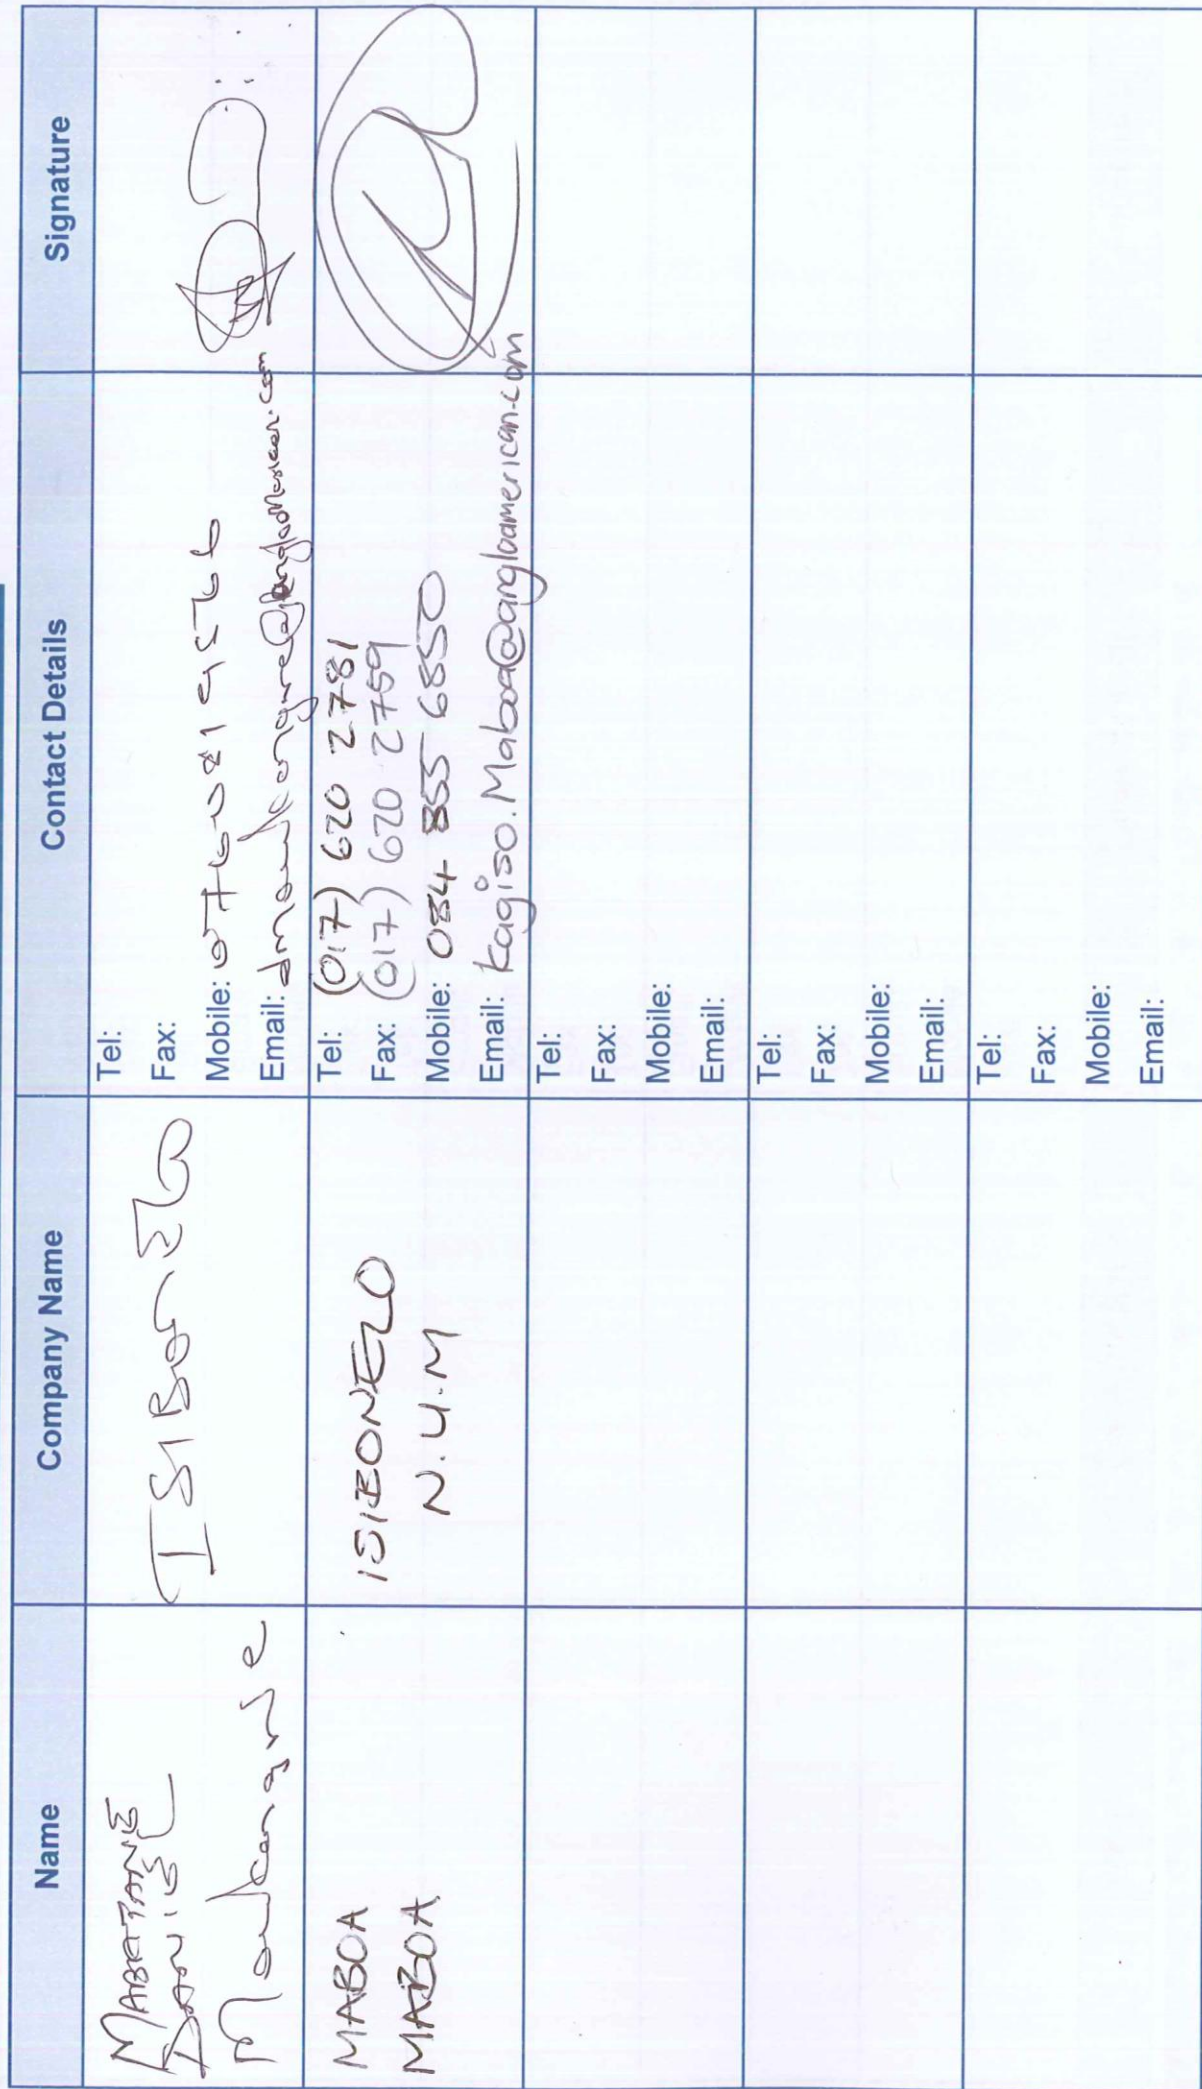 Name
Company Name
Contact Details
Signature
DANIEL
ISIBONELO
Tel:
Fax:
Mobile:
Email:
MABOA
MABOA
ISIBONELO
N.U.M
Tel: (017) 620 2781
Fax: (017) 620 2759
Mobile: 084 855 6850
Email: kagiso.Maboa@angloamerican.com
Tel:
Fax:
Mobile:
Email:
Tel:
Fax:
Mobile:
Email:
Tel:
Fax:
Mobile:
Email: